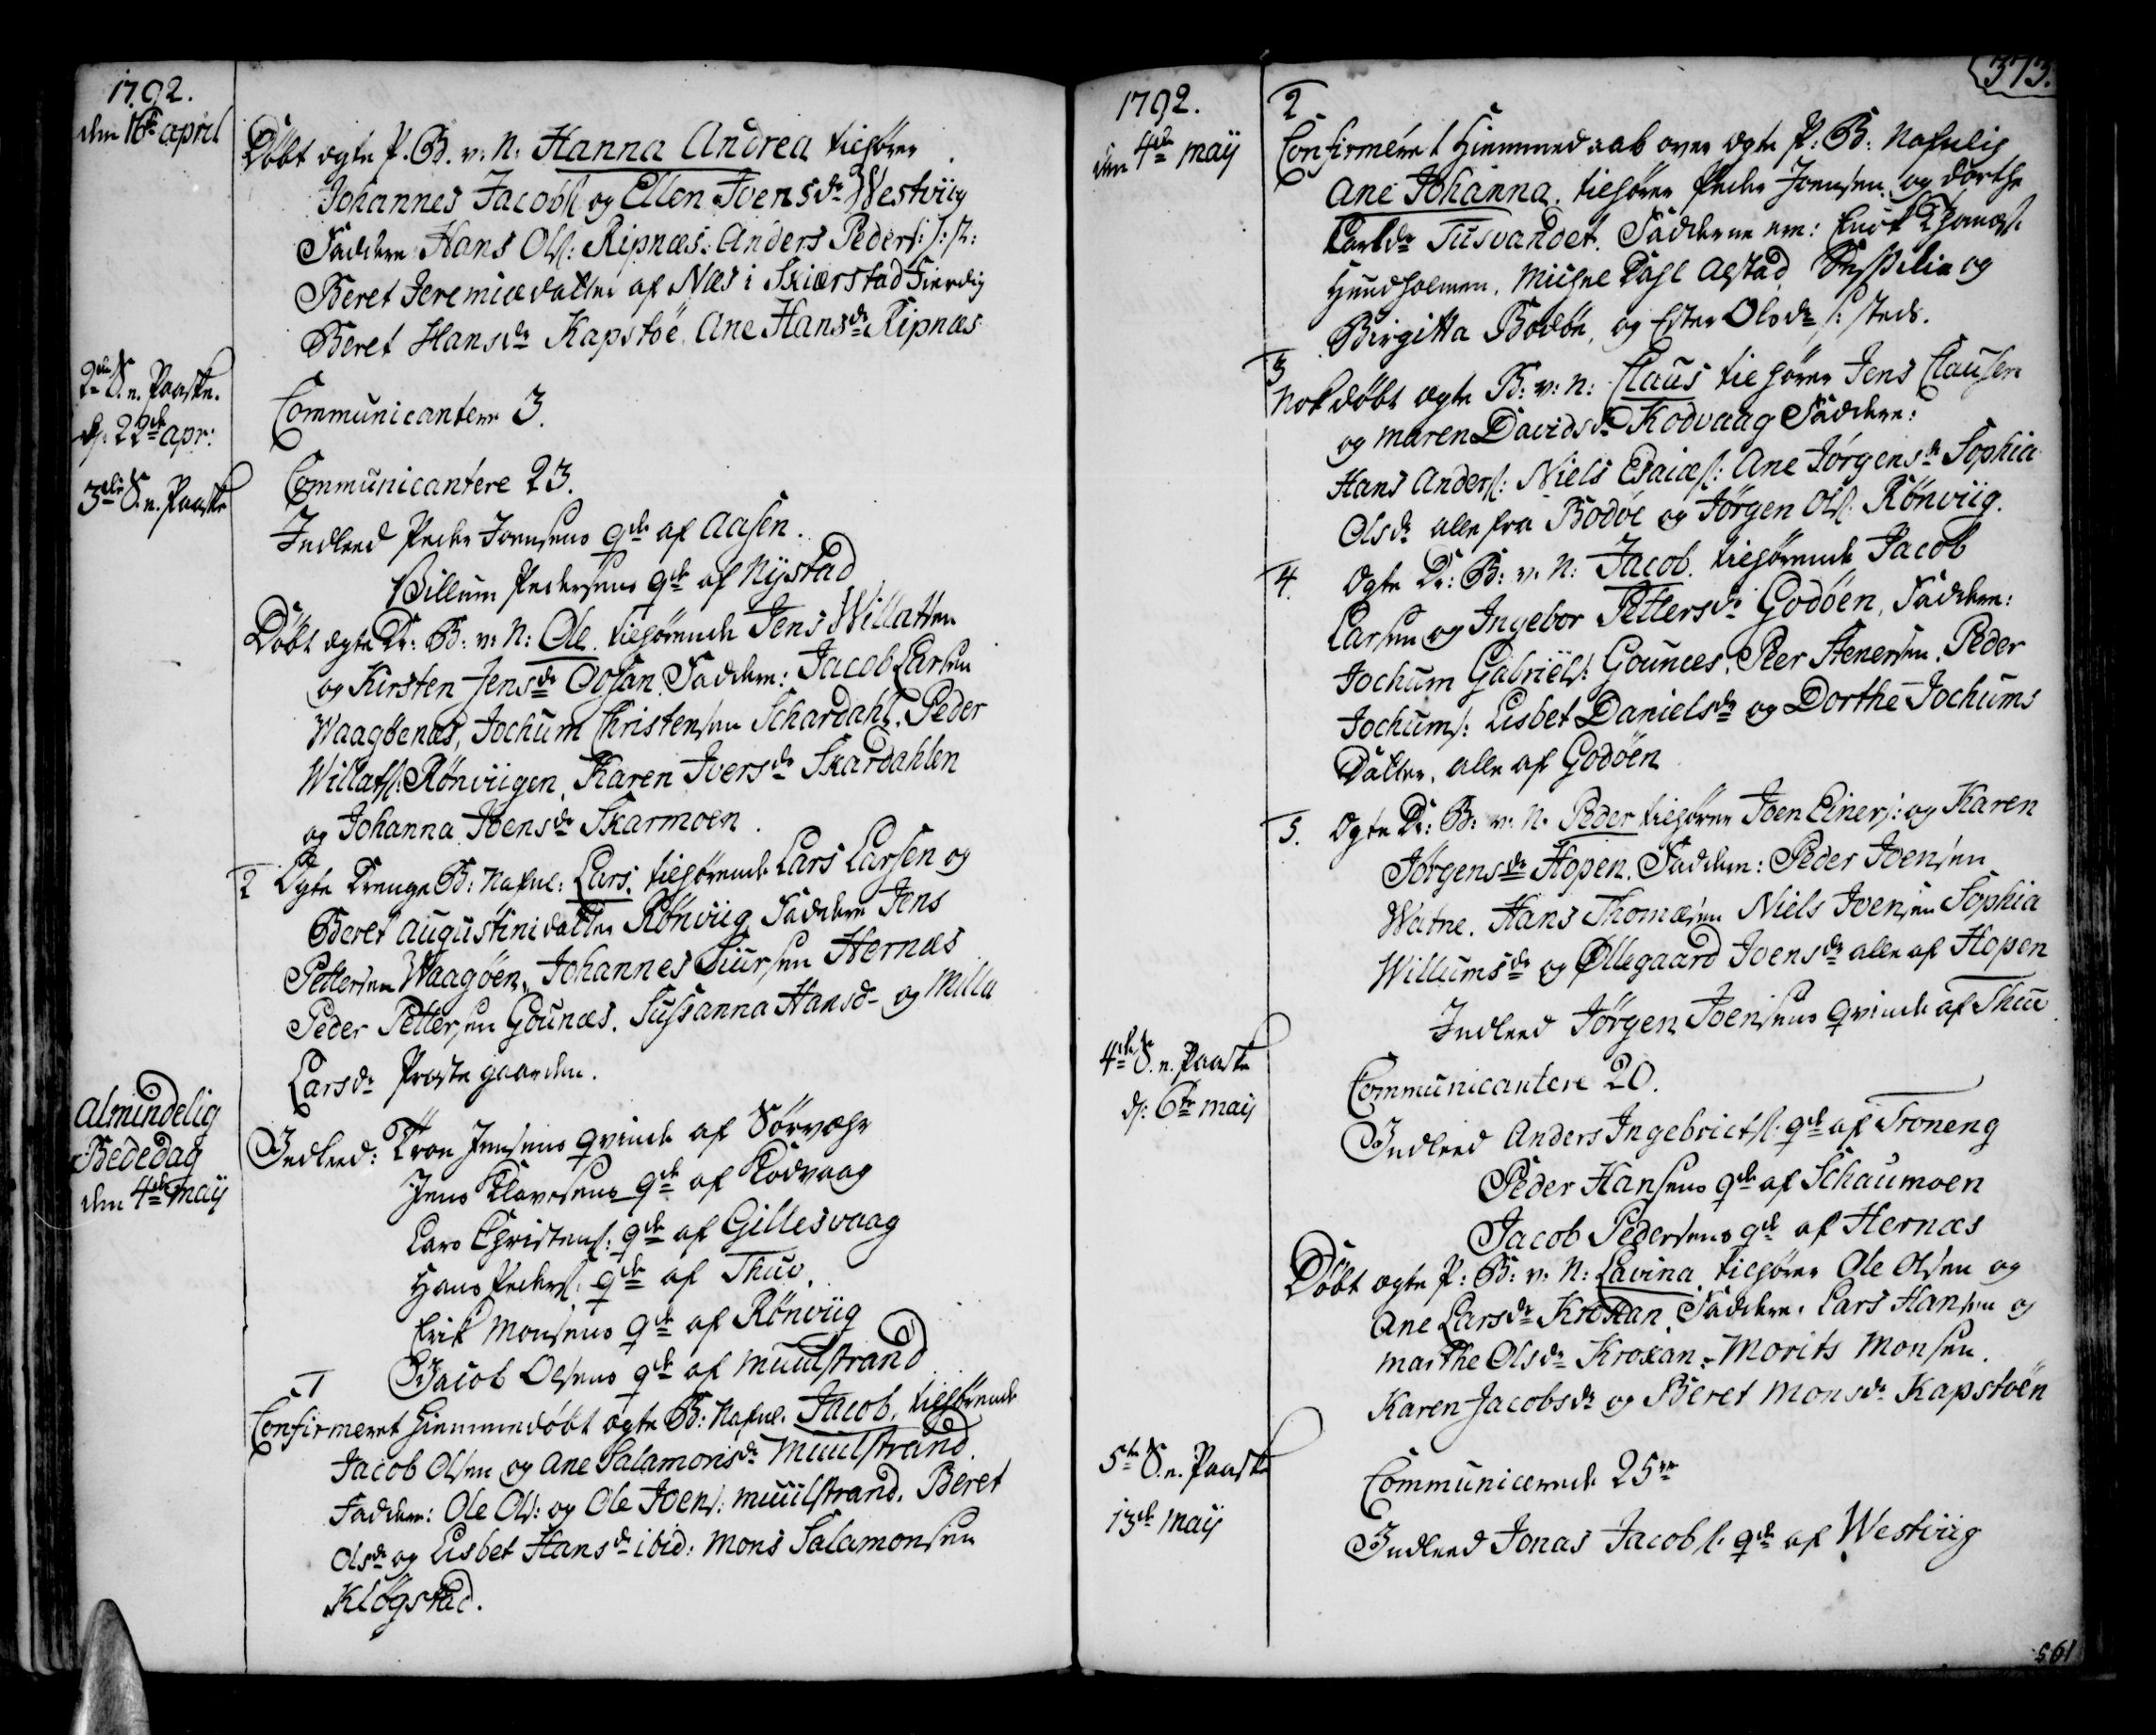 1792.
den 16de april
Döbt ægte P. B. v: N: Hanna Andrea tilhører
Johannes Jacobs: og Ellen Ivensdr Westviig
Faddere Hans Ols: Ripnæs: Anders Peders: s: st:
Beret Jeremiædatter af Næs i Skiærstad Fierdig
Beret Hansdr Kapstöe. Ane Hansdr Ripnæs
2den S. e. Paaske.
d: 22de apr:
Communicantere 3.
3die S. e. Paaske
Communicantere 23.
Indleed Peder Joensens qde af Aasen.
Villum Pedersens qde af Nÿstad
Döbt ægte Dr: B: v: N: Ole. tilhørende Jens Willatsen
og Kirsten Jensdr Oosan. Faddere: Jacob Larsen
Waagøenæs, Jochum Christensen Schardahl. Peder
Willats: Rönviigen, Karen Iversdr Skardahlen
og Johanna Joensdr Skarmoen.
2 Ægte Drenge B: Nafnl: Lars, tilhørende Lars Larsen og
Beret Augustinidatter Rönviig Faddere Jens
Pettersen Waagöen, Johannes Siursen Hernæs
Peder Pettersen Gounæs. Sussanna Hansd- og Milla
Larsdr Præstegaarden.
Almindelig
Bededag
den 4de maÿ
Indleed: Tron Jensens qvinde af Sörvær
Jens Klavesens qde af Kodvaag
Lars Christens: qde af Gillesvaag
Hans Peders: qde af Thuv.
Erik Monsens qde af Rönviig
Jacob Olsens qde af Muulstrand
1
Confirmeret hiemmedöbt ægte B: Nafnl. Jacob, tilhørende
Jacob Olsen og Ane Salamonsdr Muulstrand.
Faddere: Ole Ols: og Ole Joens: Muulstrand. Beret
Olsdr og Lisbet Hansdr ibid: Mons Salamonsen
Klögstad.
373.
1792.
den 4de maÿ
2
Confirmeret Hiemmedaab over ægte P: B: Nafnlig
Ane Johanna. tilhører Peder Joensen og Dorthe
Carlsdr Tusvandet. Fadderne ere: Enok Thomæs:
Hundholmen. Michel Dahl Alstad
Birgitta Bodöe, og Ester Olsdr s: steds.
3
Nok döbt ægte B: v: N: Claus tilhører Jens Clausen
og Maren Davidsdr Kodvaag Faddere:
Hans Anders: Niels Esaiæs: Ane Jörgensdr Sophia
Olsdr alle fra Bodöe og Jörgen Ols: Rönviig.
4. Ægte Dr: B: v: N: Jacob. tilhørende Jacob
Larsen og Ingebor Pettersdr Godöen, Faddere:
Jochum Gabriels: Gounæs. Peer Stenersen. Peder
Jochums: Lisbet Danielsdr og Dorthe Jochums
Datter. alle af Godöen
5. Ægte Dr: B: v: N. Peder tilhører Joen Einers: og Karen
Jörgensdr Hopen. Faddere: Peder Joensen
Watne. Hans Thomæsen Niels Joensen Sophia
Willumsdr og Øllegaard Joensdr alle af Hopen
Indleed Jörgen Joensens qvinde af Thuv
4de S. e. Paaske
d: 6te maÿ
Communicantere 20.
Indleed Anders Ingebricts: qde af Troneng
Peder Hansens qde af Schaumoen
Jacob Pedersens qde af Hernæs
Döbt ægte P: B: v: N: Lavina tilhører Ole Olsen og
Ane Larsdr Kroxan. Faddere. Lars Hansen og
Marthe Olsdr Kroxan. Morits Monsen.
Karen Jacobsdr og Beret Monsdr Kapstöen
5te S. e. Paaske
13de maÿ
Communicerende 25ve
Indleed Jonas Jacobs: qde af Westviig